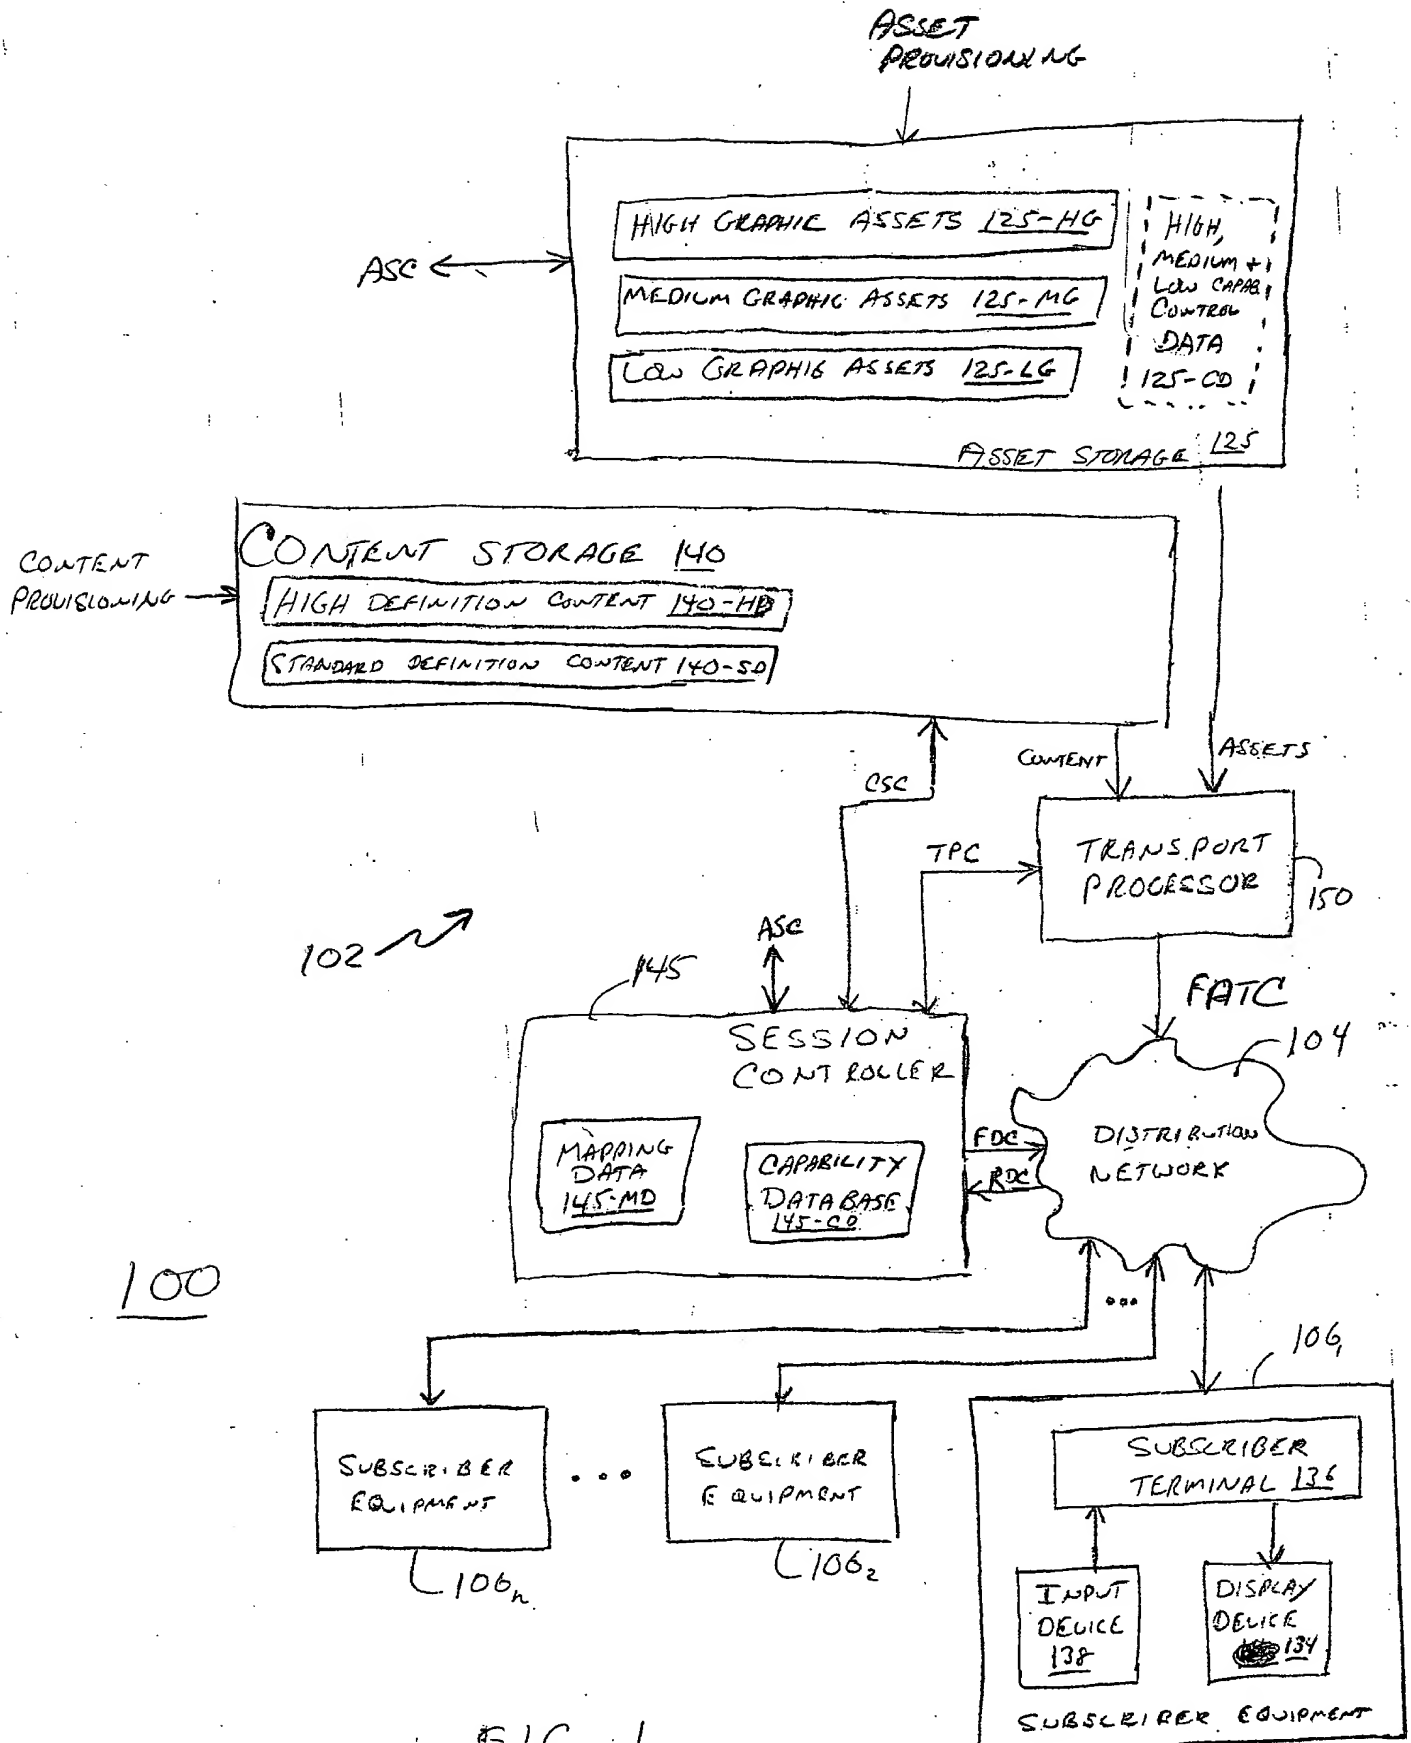 ASSET
PROVISIONING
HIGH GRAPHIC ASSETS 125-HG
MEDIUM GRAPHIC ASSETS 125-MG
LOW GRAPHIC ASSETS 125-LG
HIGH,
MEDIUM +
LOW CAPAB.
CONTROL
DATA
125-CD
ASSET STORAGE 125
ASC
CONTENT STORAGE 140
HIGH DEFINITION CONTENT 140-HD
STANDARD DEFINITION CONTENT 140-SD
CONTENT
PROVISIONING
CONTENT
ASSETS
CSC
TPC
TRANSPORT
PROCESSOR
150
102
ASC
145
FATC
104
SESSION
CONTROLLER
MAPPING
DATA
145-MD
CAPABILITY
DATABASE
145-CD
FDC
RDC
DISTRIBUTION
NETWORK
100
...
106₁
SUBSCRIBER
EQUIPMENT
...
SUBSCRIBER
EQUIPMENT
106ₙ
106₂
SUBSCRIBER
TERMINAL 136
INPUT
DEVICE
138
DISPLAY
DEVICE
134
SUBSCRIBER EQUIPMENT
FIG. 1